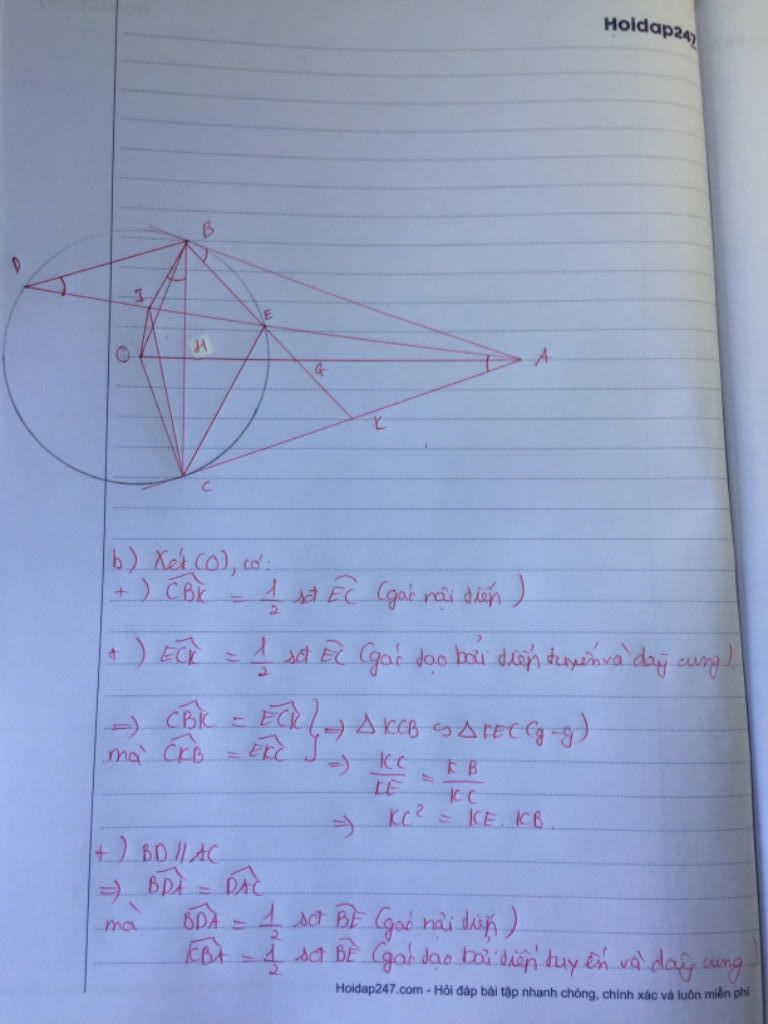 Hoidap247
B
D
I
E
O
H
A
G
K
C
b) Xét (O), có:
+) CBK = 1/2 sđ EC (góc nội tiếp)
+) ECK = 1/2 sđ EC (góc tạo bởi tiếp tuyến và dây cung)
=> CBK = ECK } => Δ KCB ∽ Δ KEC (g-g)
mà CKB = EKC
=> KC/KE = KB/KC
=> KC² = KE.KB.
+) BD // AC
=> BDA = DAC
mà BDA = 1/2 sđ BE (góc nội tiếp)
KBA = 1/2 sđ BE (góc tạo bởi tiếp tuyến và dây cung)
Hoidap247.com - Hỏi đáp bài tập nhanh chóng, chính xác và luôn miễn phí